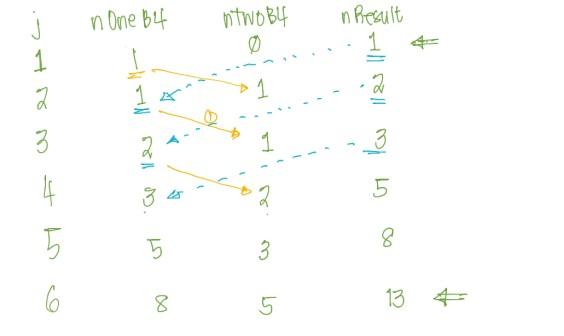 j nOneB4 nTwoB4 nResult
1 1 0 1
2 1 1 2
①
3 2 1 3
4 3 2 5
5 5 3 8
6 8 5 13